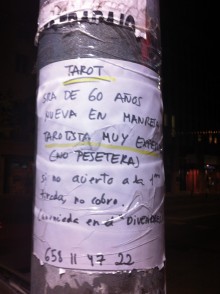 TAROT
SRA DE 60 AÑOS
NUEVA EN MANRESA
TAROTISTA MUY EXPER
(NO PESETERA)
Si no acierto a la 1ª
tirada, no cobro.
Conocida en el "Divendres"
658 11 47 22